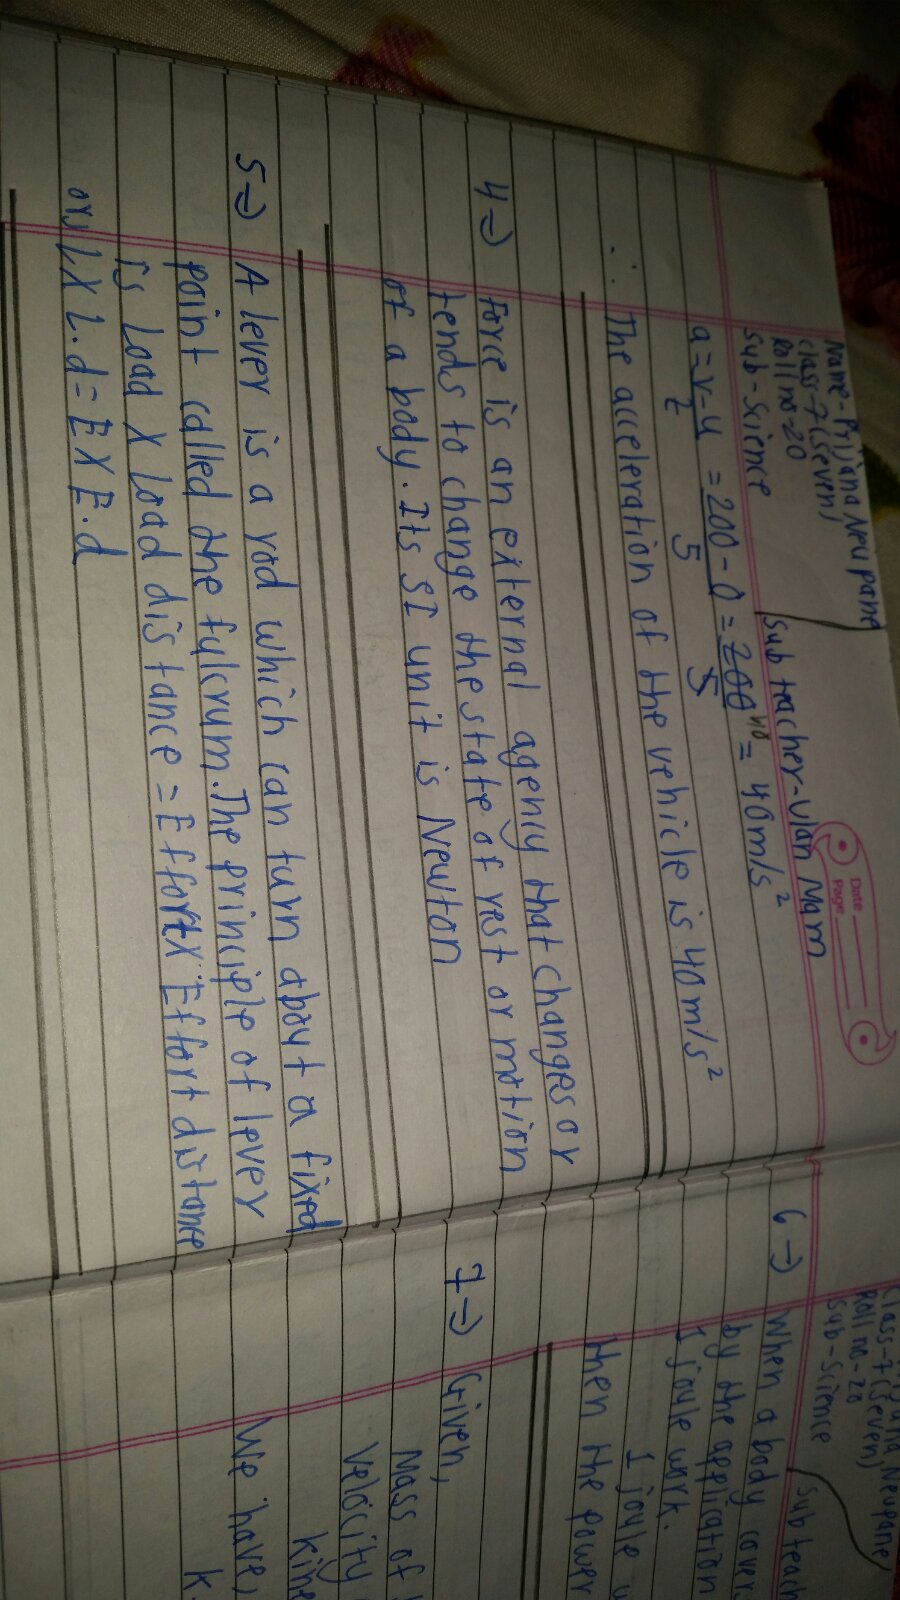 Name-Prijana Neupane
Class-7(Seven)
Roll no-20
Sub-Science
Sub teacher- Mam
Date
Page
a = v-u/t = 200-0/5 = 200/5 40 = 40m/s²
∴ The acceleration of the vehicle is 40m/s²
4→ Force is an external agency that changes or
tends to change the state of rest or motion
of a body. Its SI unit is Newton
5→ A lever is a rod which can turn about a fixed
point called the fulcrum. The principle of lever
is Load X load distance = Effort X Effort distance
or, L X L.d = E X E.d
Neupane
Class-7(Seven)
Roll no-20
Sub-Science
Sub teach
6→ When a body cover
by the application
1 joule work.
1 joule w
then the power
7→ Given,
Mass of
Velocity
kine
We have,
K.